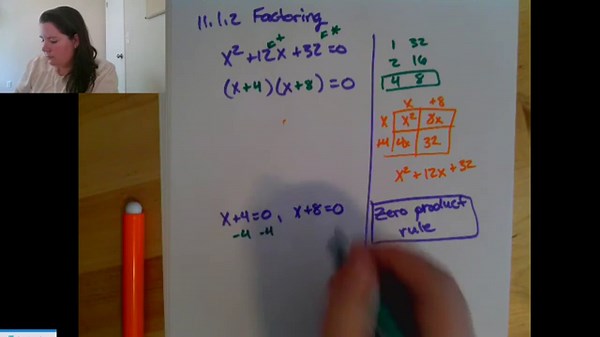 11.1.2 Factoring
= + = *
x² + 12x + 32 = 0
(x+4)(x+8) = 0
x+4=0, x+8=0
-4 -4
1 32
2 16
4 8
x +8
x x² 8x
+4 4x 32
x² + 12x + 32
Zero product
rule